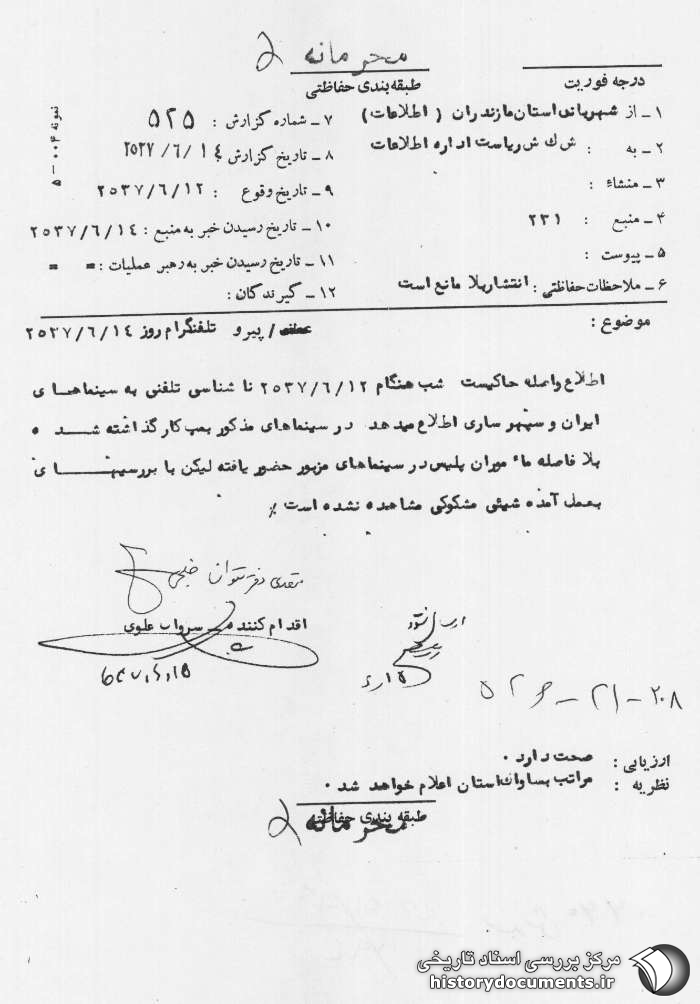 محرمانه
درجه فوریت
طبقه‌بندی حفاظتی
نمونه ۰۰۴ - ۵
۱ - از شهربانی استان مازندران ( اطلاعات )
۲ - به : ش ک ش ریاست اداره اطلاعات
۳ - منشاء :
۴ - منبع : ۲۳۱
۵ - پیوست :
۶ - ملاحظات حفاظتی : انتشار بلا مانع است
۷ - شماره گزارش : ۵۲۵
۸ - تاریخ گزارش ۲۵۳۷/۶/۱۴
۹ - تاریخ وقوع : ۲۵۳۷/۶/۱۲
۱۰ - تاریخ رسیدن خبر به منبع : ۲۵۳۷/۶/۱۴
۱۱ - تاریخ رسیدن خبر به رهبر عملیات : = =
۱۲ - گیرندگان :
موضوع :
/ پیرو تلفنگرام روز ۲۵۳۷/۶/۱۴
اطلاع واصله حاکیست شب هنگام ۲۵۳۷/۶/۱۲ نا شناسی تلفنی به سینماهای
ایران و سپهر ساری اطلاع میدهد در سینماهای مذکور بمب کار گذاشته شده
بلا فاصله مأموران پلیس در سینماهای مزبور حضور یافته لیکن با بررسیهای
بعمل آمده شیئی مشکوکی مشاهده نشده است ٪
متصدی دفتر ستوان
اقدام کننده - سروان علوی
ارزیابی : صحت دارد ۰
نظریه : مراتب بساواک استان اعلام خواهد شد ۰
طبقه بندی حفاظتی
محرمانه
مرکز بررسی اسناد تاریخی
historydocuments.ir